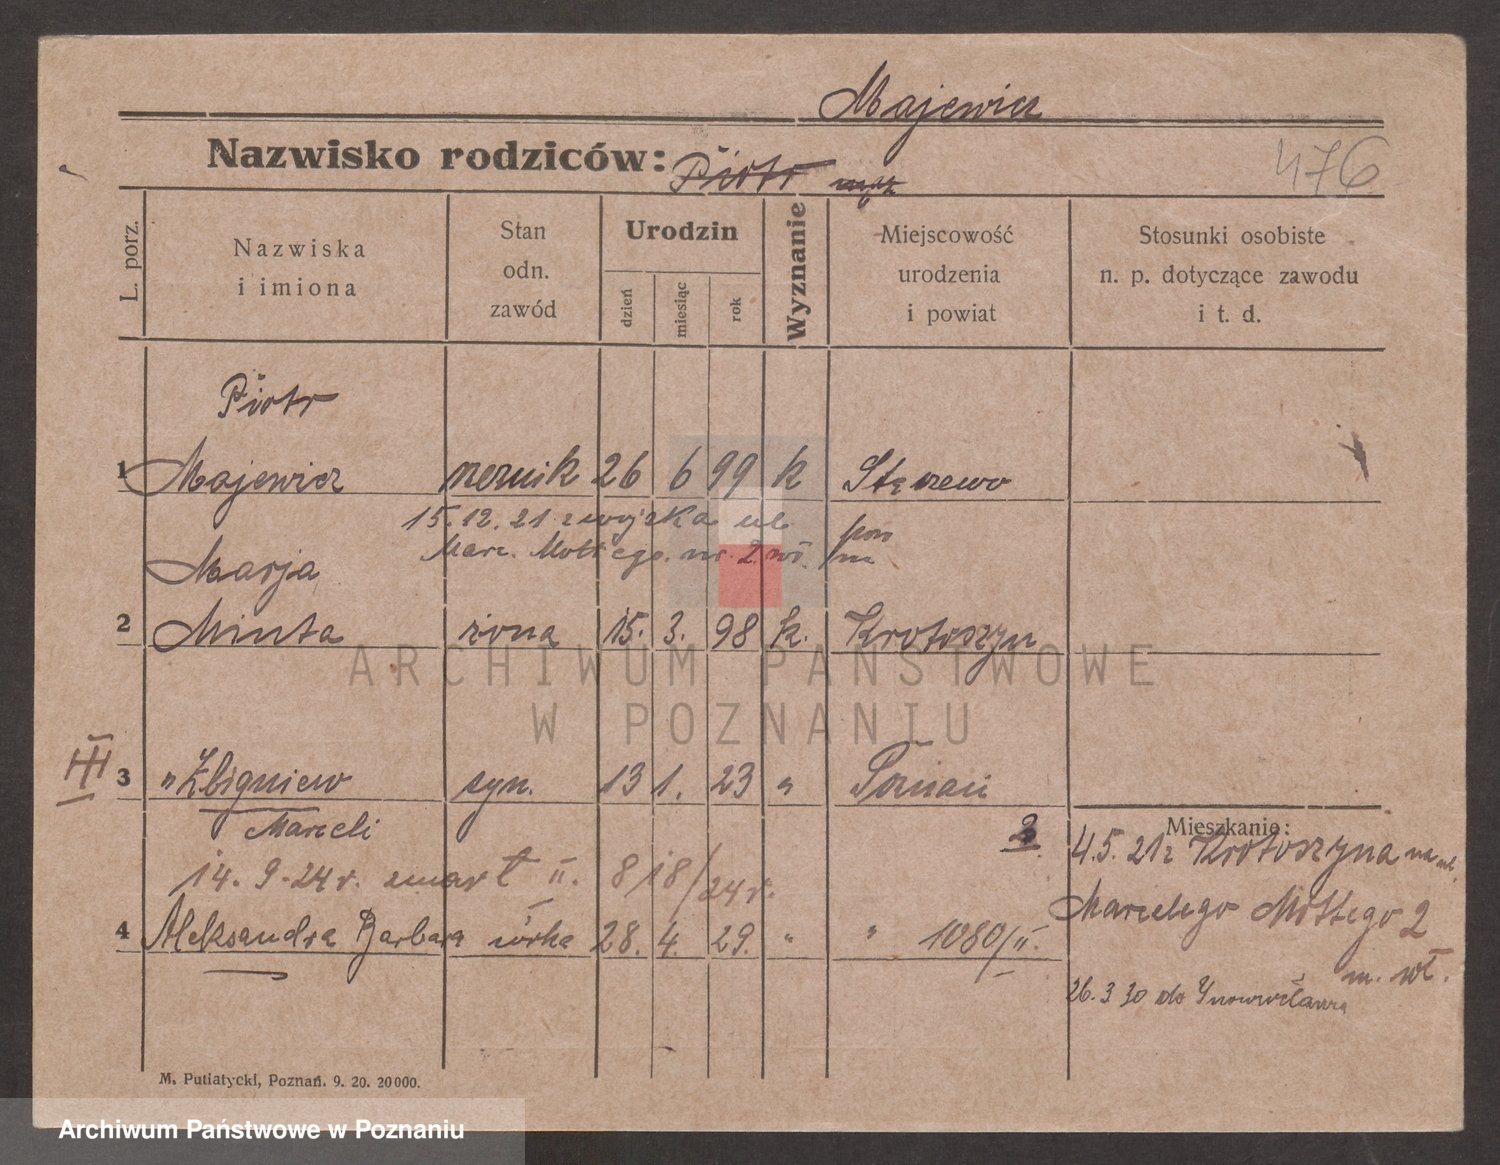 Majewicz
Nazwisko rodziców: Piotr
476
L. porz.
Nazwiska i imiona
Stan odn. zawód
Urodzin
dzień
miesiąc
rok
Wyznanie
Miejscowość urodzenia i powiat
Stosunki osobiste n. p. dotyczące zawodu i t. d.
Piotr
1 Majewicz rzeźnik 26 6 99 k Stęszewo
15.12.21 z wojska ul.
Marc. Mottego. nr. 2
Marja
2 Minta żona 15. 3. 98 k. Krotoszyn
III 3 " Zbigniew syn. 13 1. 23 " Poznań
Marceli
2
Mieszkanie:
4.5.21 z Krotoszyna na ul.
14.9.24 r. zmarł II. 818/24 r.
Marcelego Mottego 2
4 Aleksandra Barbara córka 28. 4. 29. " " 1080/II.
m. wł.
26.3 30 do Inowrocławia
M. Putiatycki, Poznań. 9. 20. 20000.
ARCHIWUM PAŃSTWOWE
W POZNANIU
Archiwum Państwowe w Poznaniu